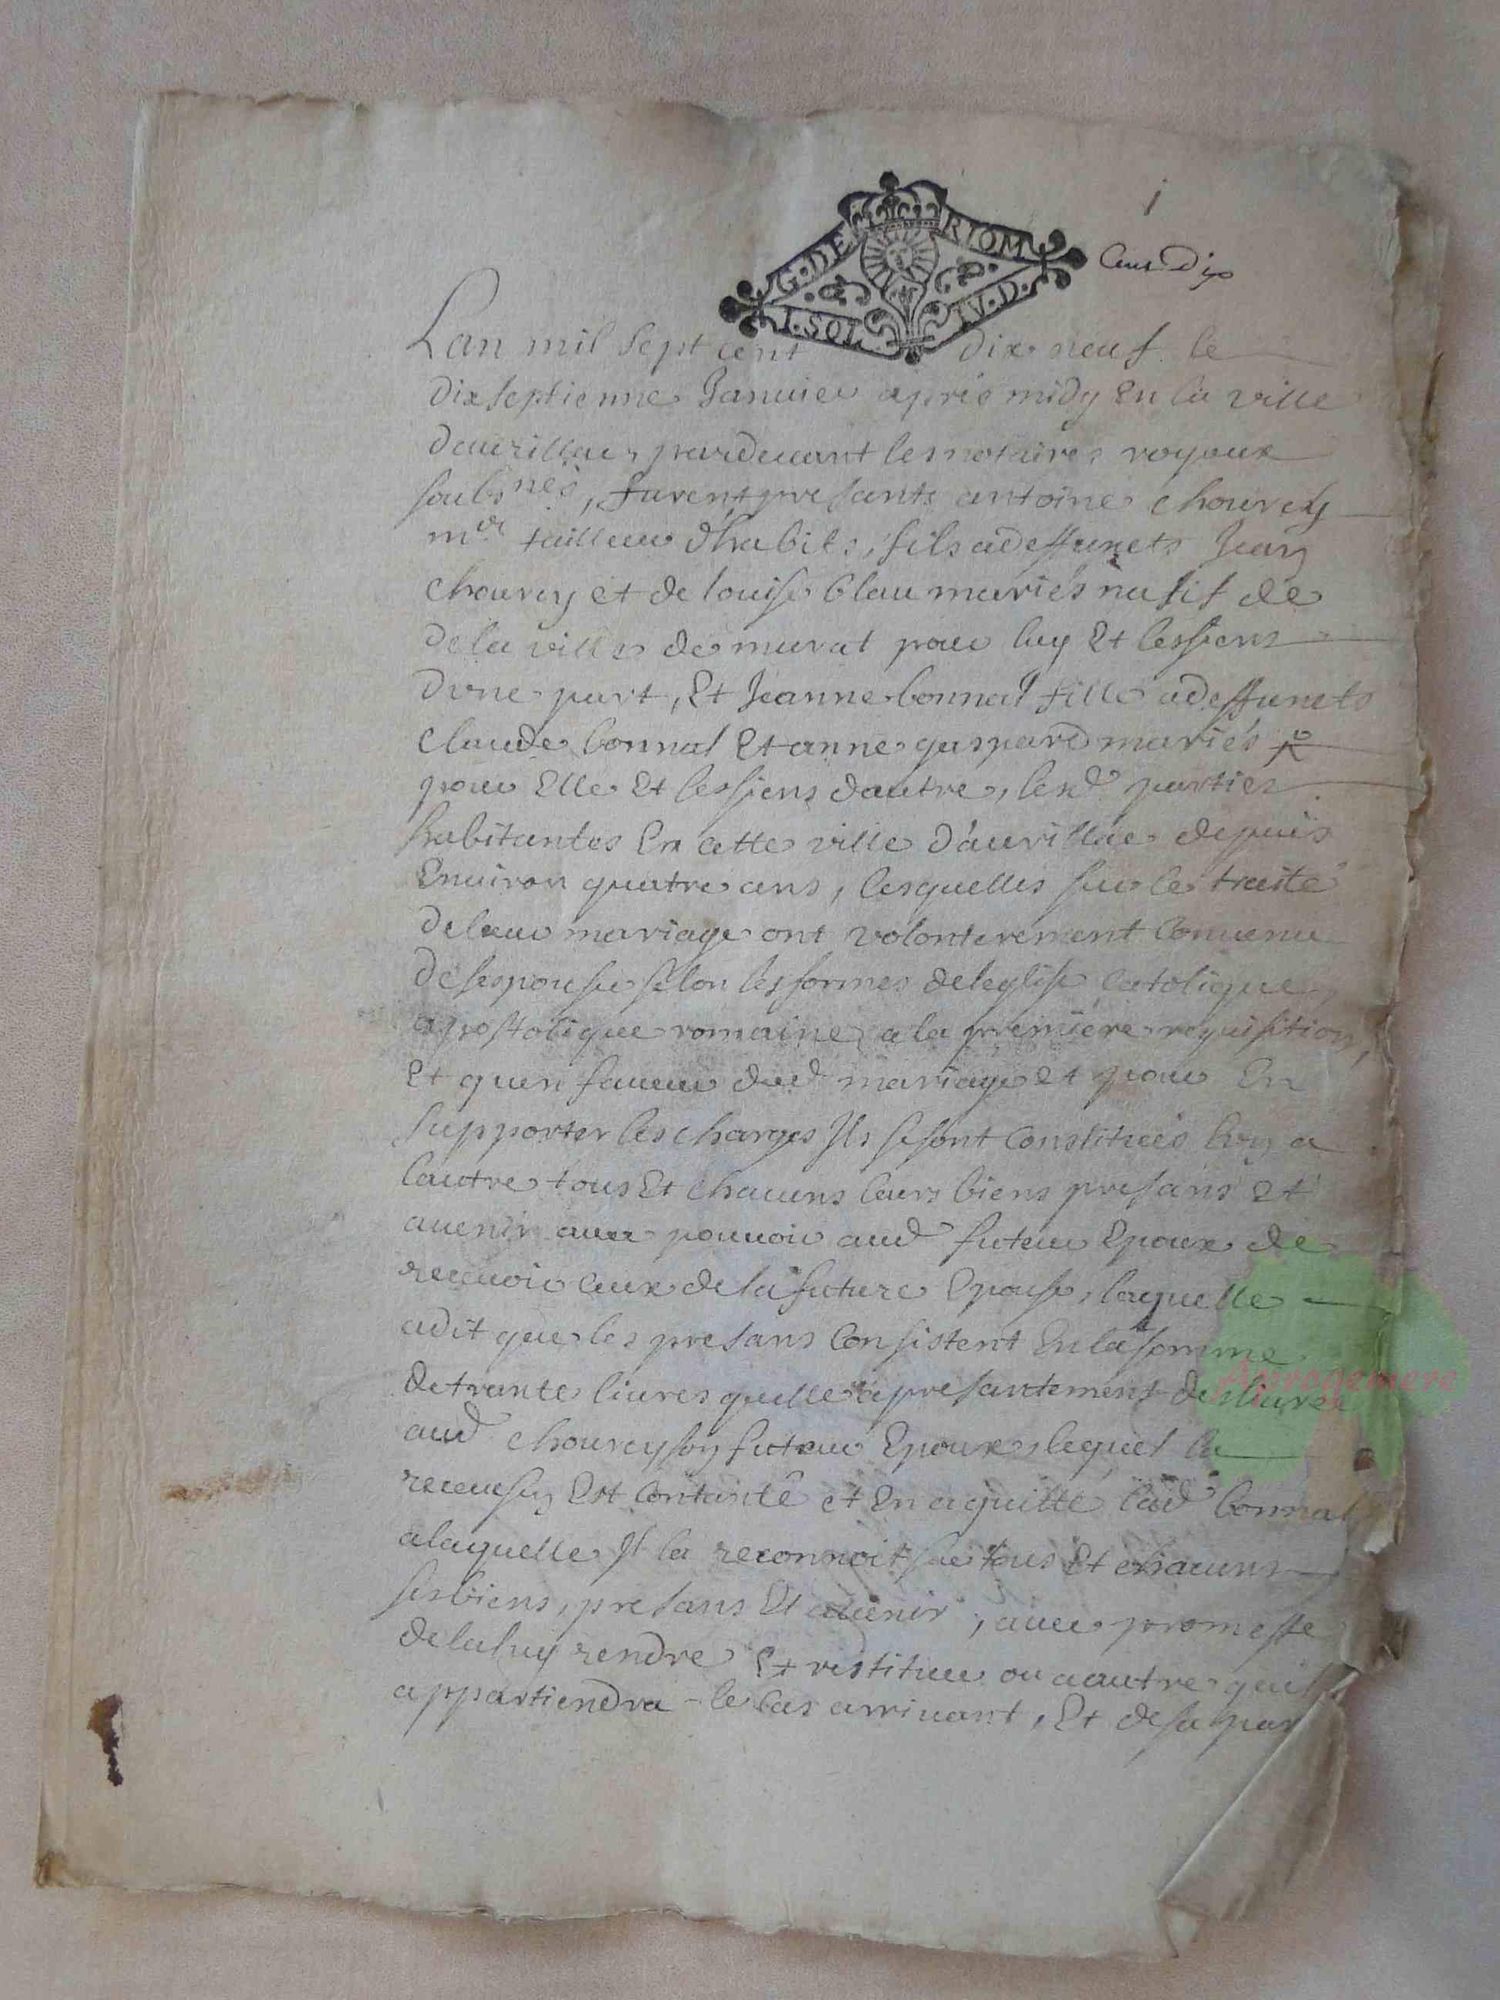 1
G. DE RIOM
Cent Dix
I. SOL IV. D.
Lan mil sept cent dix neuf le
dixseptienne Januier apres midy En la ville
daurillac, pardeuant les notaires royaux
soubsnés, furent presants antoine chourcy
mtr tailleur dhabits, fils adeffunets Jean
chourcy et de louise blau mariés natif de
de la ville de murat pour luy Et lessiens
dune part, Et Jeanne bonnal fille adeffunets
claude bonnal Et anne gaspard mariés
pour Elle Et lessiens dautre, lesd. parties
habitantes En cette ville d'aurillac depuis
Enuiron quatre ans, lesquelles sur le traité
deleur mariage ont volonterement Conuenu
desespouser selon lesformes deleglise Catolique
apostolique romaine, a la premiere requisition,
Et quen faueur dud mariage et pour En
supporter les charges Ils sesont Constitués lun a
lautre tous Et chacuns leurs biens presans et
auenir auec pouuoir aud futeur Epoux de
receuoir ceux de la future Epouse, laquelle
adit que les presans Consistent En la somme
detrante liures quelle a presantement desliuree
aud chourcy son futeur Epoux, lequel la
receue sen Est Contanté et En aquitte lad bonnal
alaquelle Il la reconnoit sur tous Et chacuns
sesbiens, presans Et auenir, auec promesse
delaluy rendre Et restituer ou aautre quil
appartiendra le cas arriuant, Et desa par
Aprogemere